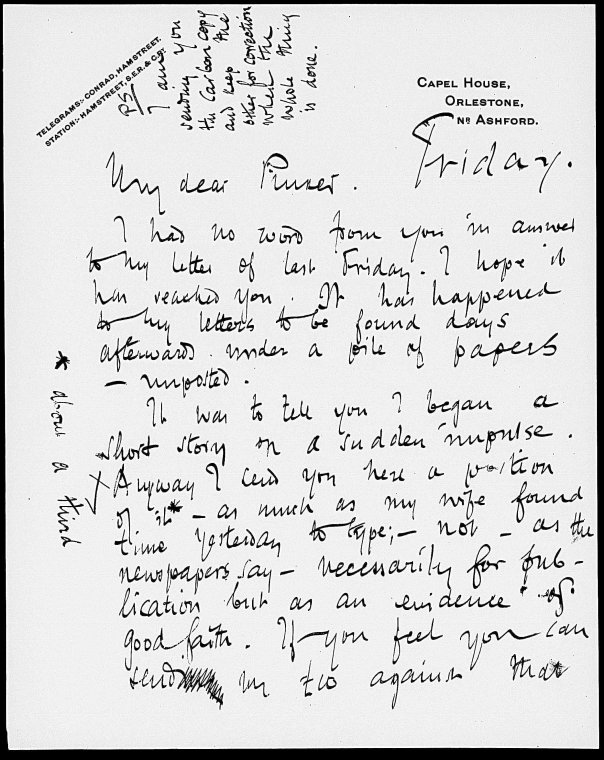 TELEGRAMS:- CONRAD, HAMSTREET.
STATION:- HAMSTREET, S.E.R. & C.ST.
PS
I am
sending you
the Carbon copy
and keep the
other for correction
when the
whole thing
is done.
CAPEL HOUSE,
ORLESTONE,
NR ASHFORD.
Friday.
My dear Pinker.
I had no word from you in answer
to my letter of last Friday. I hope it
has reached you. It has happened
to my letters to be found days
afterwards under a pile of papers
- unposted.
It was to tell you I began a
short story on a sudden impulse.
Anyway I send you here a portion
of it* - as much as my wife found
time yesterday to type; - not - as the
newspapers say - necessarily for pub-
lication but as an evidence of
good faith. If you feel you can
send me £10 against that
* about a third